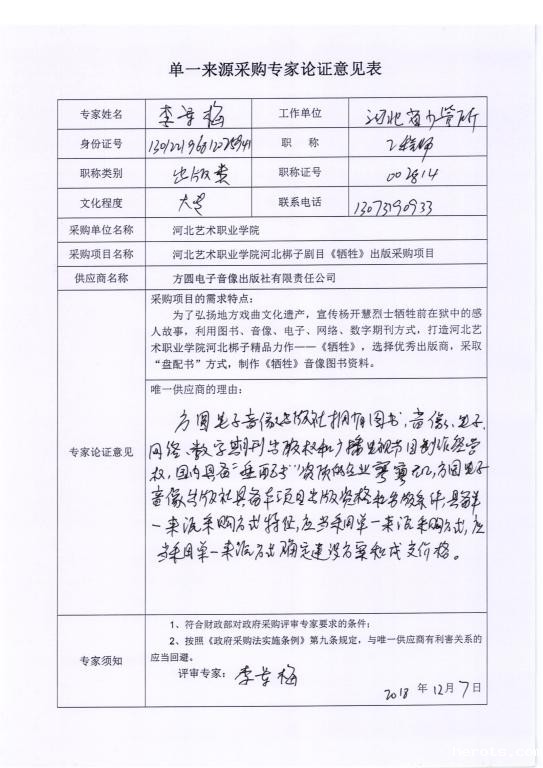 单一来源采购专家论证意见表
专家姓名 李 梅 工作单位 河北省
身份证号 职 称 工程师
职称类别 出版类 职称证号 002814
文化程度 大专 联系电话 13073190933
采购单位名称 河北艺术职业学院
采购项目名称 河北艺术职业学院河北梆子剧目《牺牲》出版采购项目
供应商名称 方圆电子音像出版社有限责任公司
专家论证意见
采购项目的需求特点：
为了弘扬地方戏曲文化遗产，宣传杨开慧烈士牺牲前在狱中的感
人故事，利用图书、音像、电子、网络、数字期刊方式，打造河北艺
术职业学院河北梆子精品力作——《牺牲》，选择优秀出版商，采取
“盘配书”方式，制作《牺牲》音像图书资料。
唯一供应商的理由：
方圆电子音像出版社拥有图书、音像、电子、
网络、数字期刊出版权和广播电视节目制作经营
权，国内具备“ 配书”资质的企业寥寥无几，方圆电子
音像出版社具备本项目出版资格和出版条件，具备单
一来源采购方式特征，应当采用单一来源采购方式，应
当采用单一来源方式确定建设方案和成交价格。
专家须知
1、符合财政部对政府采购评审专家要求的条件；
2、按照《政府采购法实施条例》第九条规定，与唯一供应商有利害关系的
应当回避。
评审专家： 李 梅
2018 年 12 月 7 日